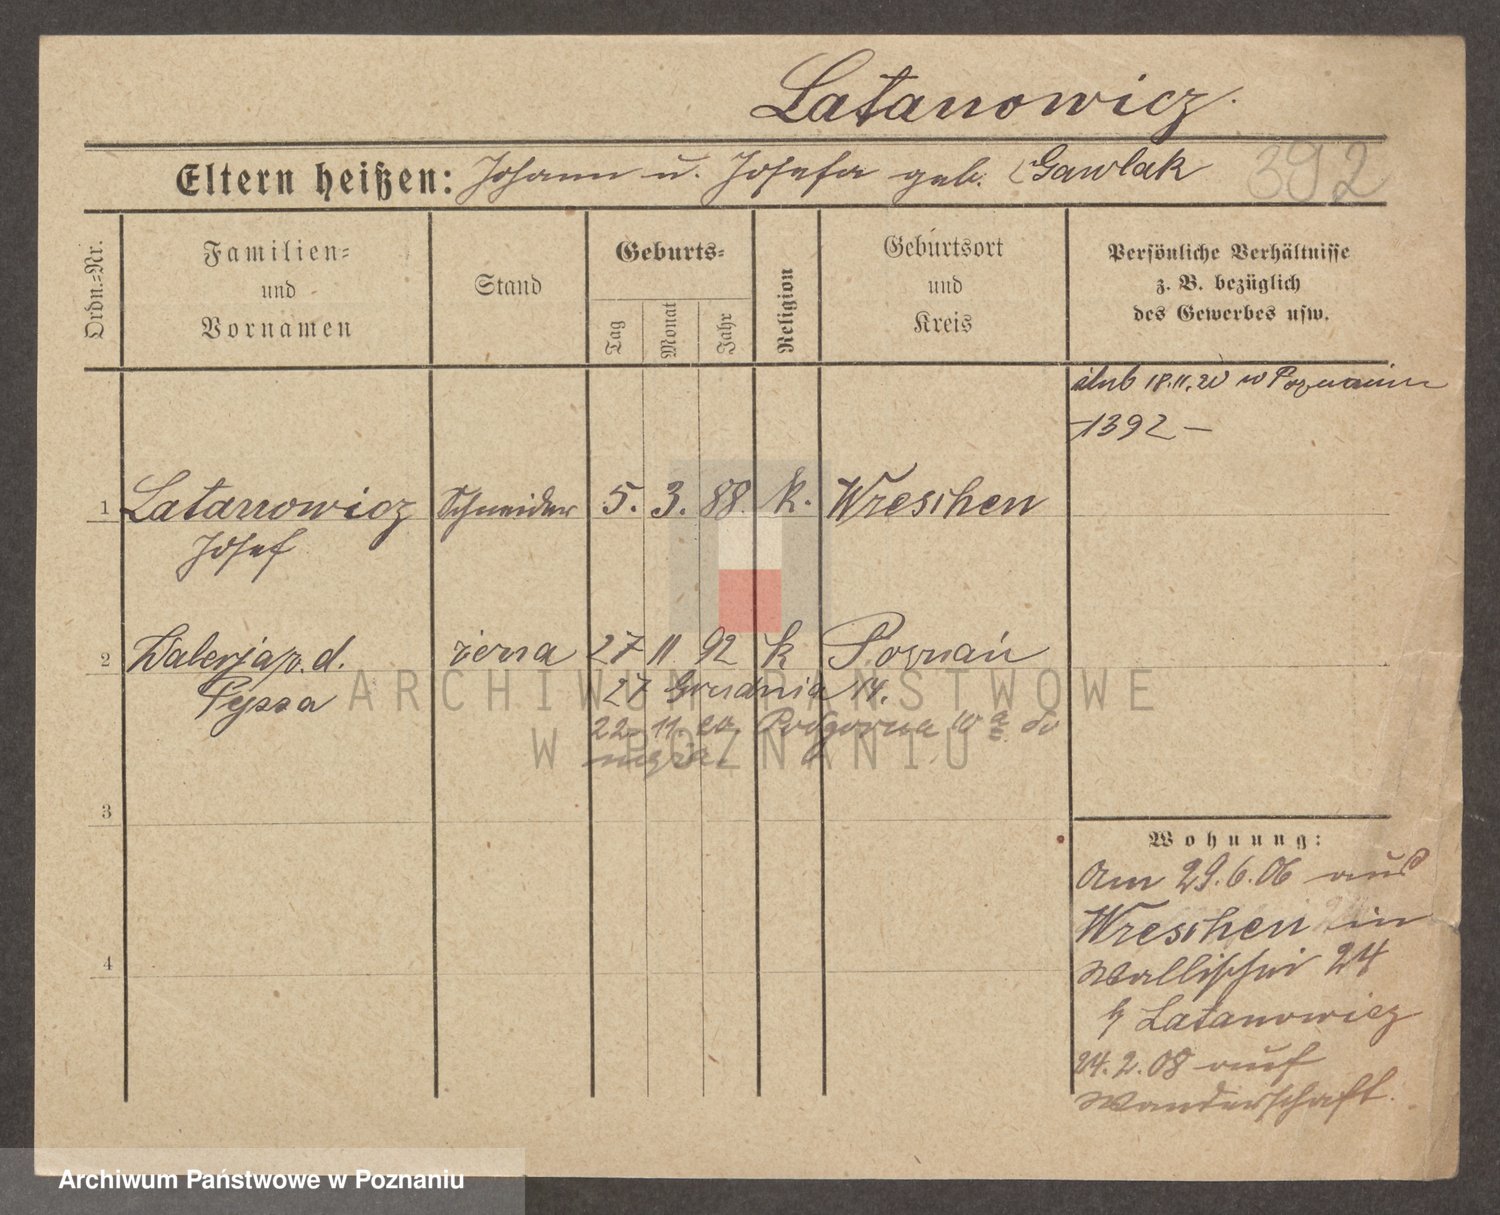 Latanowicz.
Eltern heißen: Johann u. Josefa geb. Gawlak
392
Ordn.-Nr.
Familien-
und
Vornamen
Stand
Geburts-
Tag
Monat
Jahr
Religion
Geburtsort
und
Kreis
Persönliche Verhältnisse
z. B. bezüglich
des Gewerbes usw.
ślub 18.11.20 w Poznaniu
-1392-
1 Latanowicz Schneider 5. 3. 88. k. Wreschen
Josef
2 Walerja p. d. żona 27 11 92 k Poznań
27 Grudnia 14.
22. 11. 20. Podgórna 10 a do
męża.
3
4
Wohnung:
Am 29.6.06 aus
Wreschen in
Wallischei 24
b/ Latanowicz
24.2.08 auf
Wanderschaft.
ARCHIWUM PAŃSTWOWE
W POZNANIU
Archiwum Państwowe w Poznaniu